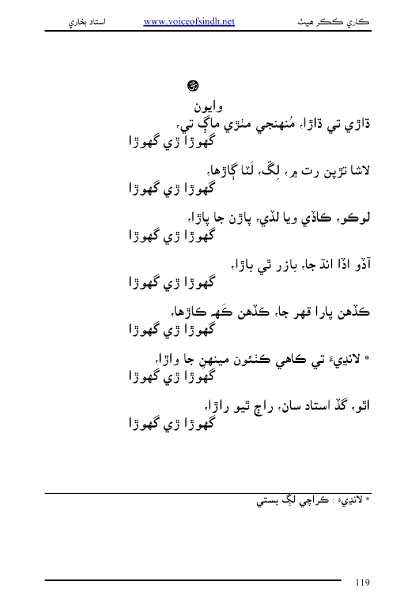 ڪاري ڪڪر هيٺ www.voiceofsindh.net استاد بخاري
وايون
ڌاڙي تي ڌاڙا، مُنهنجي مٺڙي ماڳ تي،
گهوڙا ڙي گهوڙا
لاشا تڙپن رت ۾، لِڱَ، لَٽا ڳاڙها،
گهوڙا ڙي گهوڙا
لوڪو، ڪاڏي ويا لڏي، پاڙن جا پاڙا،
گهوڙا ڙي گهوڙا
آڏو اڏا انڌ جا، بازر ٿي باڙا،
گهوڙا ڙي گهوڙا
ڪڏهن پارا قهر جا، ڪڏهن ڪَهہ ڪاڙها،
گهوڙا ڙي گهوڙا
* لانڍيءَ تي ڪاهي ڪٺئون مينهن جا واڙا،
گهوڙا ڙي گهوڙا
اٿو، گڏ استاد سان، راڄ ٿيو راڙا،
گهوڙا ڙي گهوڙا
* لانڍيءَ : ڪراچي لڳ بستي
119